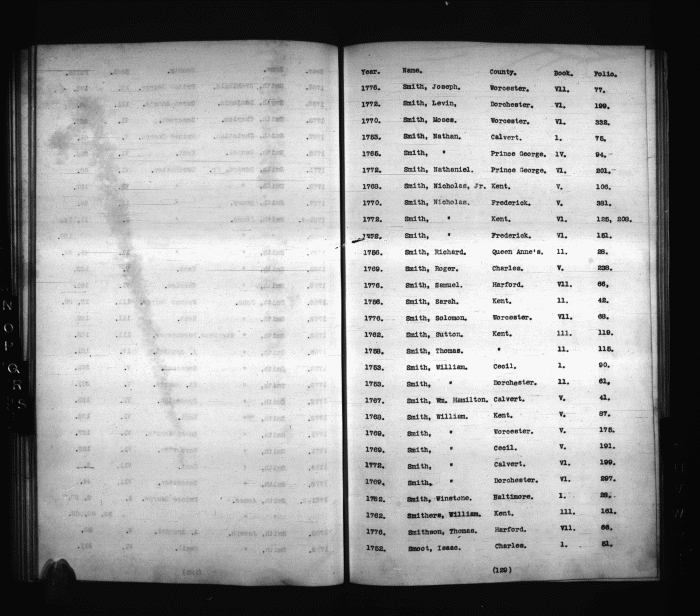 Year. Name. County. Book. Folio.
1776. Smith, Joseph. Worcester. V11. 77.
1772. Smith, Levin. Dorchester. V1. 199.
1770. Smith, Moses. Worcester. V1. 332.
1753. Smith, Nathan. Calvert. 1. 75.
1765. Smith, " Prince George. 1V. 94.
1772. Smith, Nathaniel. Prince George. V1. 201.
1768. Smith, Nicholas, Jr. Kent. V. 106.
1770. Smith, Nicholas. Frederick. V. 381.
1772. Smith, " Kent. V1. 125, 208.
1772. Smith, " Frederick. V1. 151.
1756. Smith, Richard. Queen Anne's. 11. 28.
1769. Smith, Roger. Charles. V. 238.
1776. Smith, Samuel. Harford. V11. 66.
1756. Smith, Sarah. Kent. 11. 42.
1776. Smith, Solomon. Worcester. V11. 68.
1762. Smith, Sutton. Kent. 111. 119.
1758. Smith, Thomas. " 11. 115.
1753. Smith, William. Cecil. 1. 90.
1753. Smith, " Dorchester. 11. 61.
1767. Smith, Wm. Hamilton. Calvert. V. 41.
1768. Smith, William. Kent. V. 87.
1769. Smith, " Worcester. V. 175.
1769. Smith, " Cecil. V. 191.
1772. Smith, " Calvert. V1. 199.
1769. Smith, " Dorchester. V1. 297.
1752. Smith, Winstone. Baltimore. 1. 28.
1762. Smithers, William. Kent. 111. 161.
1776. Smithson, Thomas. Harford. V11. 66.
1752. Smoot, Isaac. Charles. 1. 51.
(129)